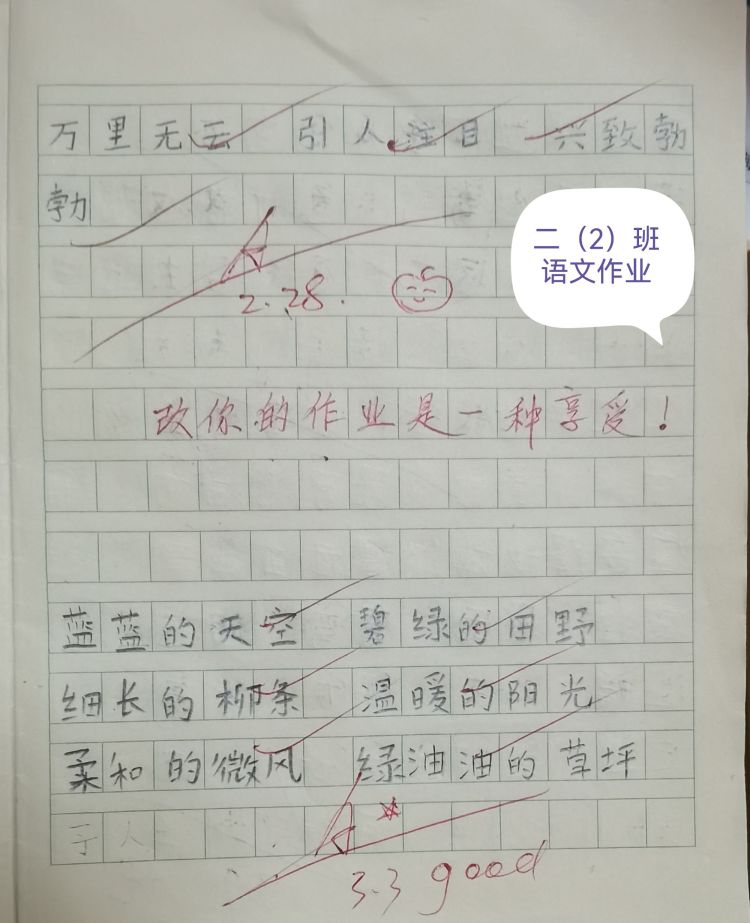 万里无云 引人注目 兴致勃
勃
二（2）班
语文作业
A
2.28.
改你的作业是一种享受！
蓝蓝的天空 碧绿的田野
细长的柳条 温暖的阳光
柔和的微风 绿油油的草坪
A
3.3 good